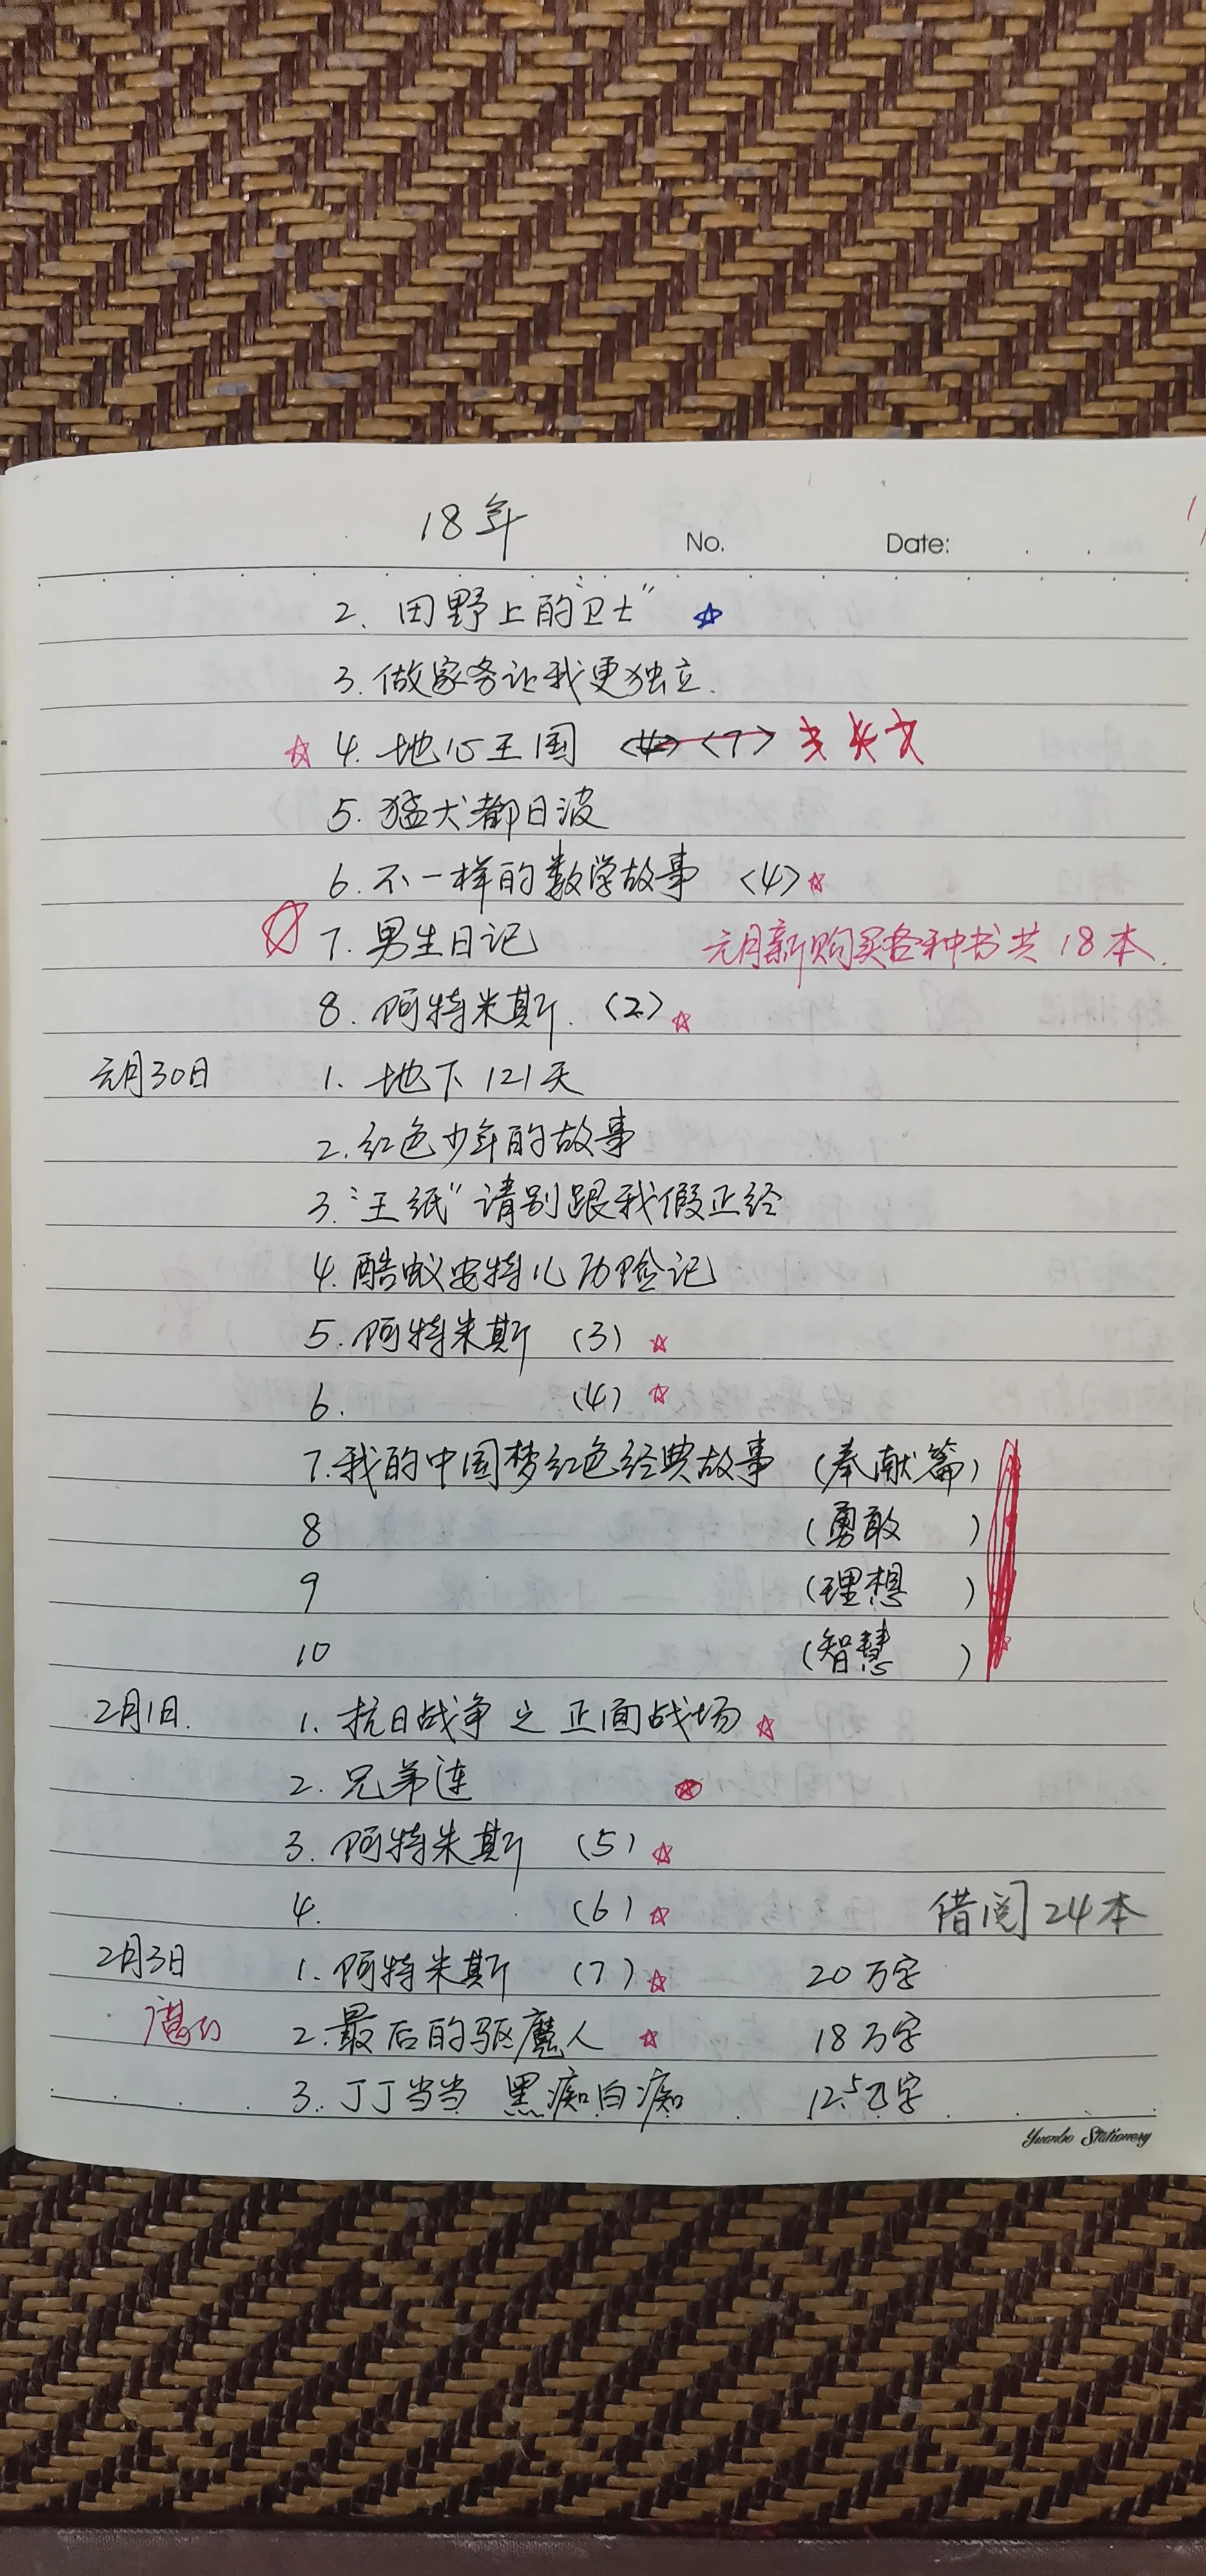 18年
No. Date:
2、田野上的“卫士”
3.做家务让我更独立.
4.地心王国 <4> <7>
5.猛犬都日波
6.不一样的数学故事 <4>
7.男生日记 元月新购买各种书共18本.
8.阿特米斯.(2)
元月30日 1、地下121天
2.红色少年的故事
3.“王纸”请别跟我假正经
4.酷蚁安特儿历险记
5.阿特米斯 (3)
6. (4)
7.我的中国梦红色经典故事 (奉献篇)
8 (勇敢 )
9 (理想 )
10 (智慧 )
2月1日. 1.抗日战争之正面战场
2.兄弟连
3.阿特米斯 (5)
4. (6) 借阅24本
2月3日 1.阿特米斯 (7) 20万字
2.最后的驱魔人 18万字
3.丁丁当当 黑痴白痴 12.5万字
Yuanbo Stationery